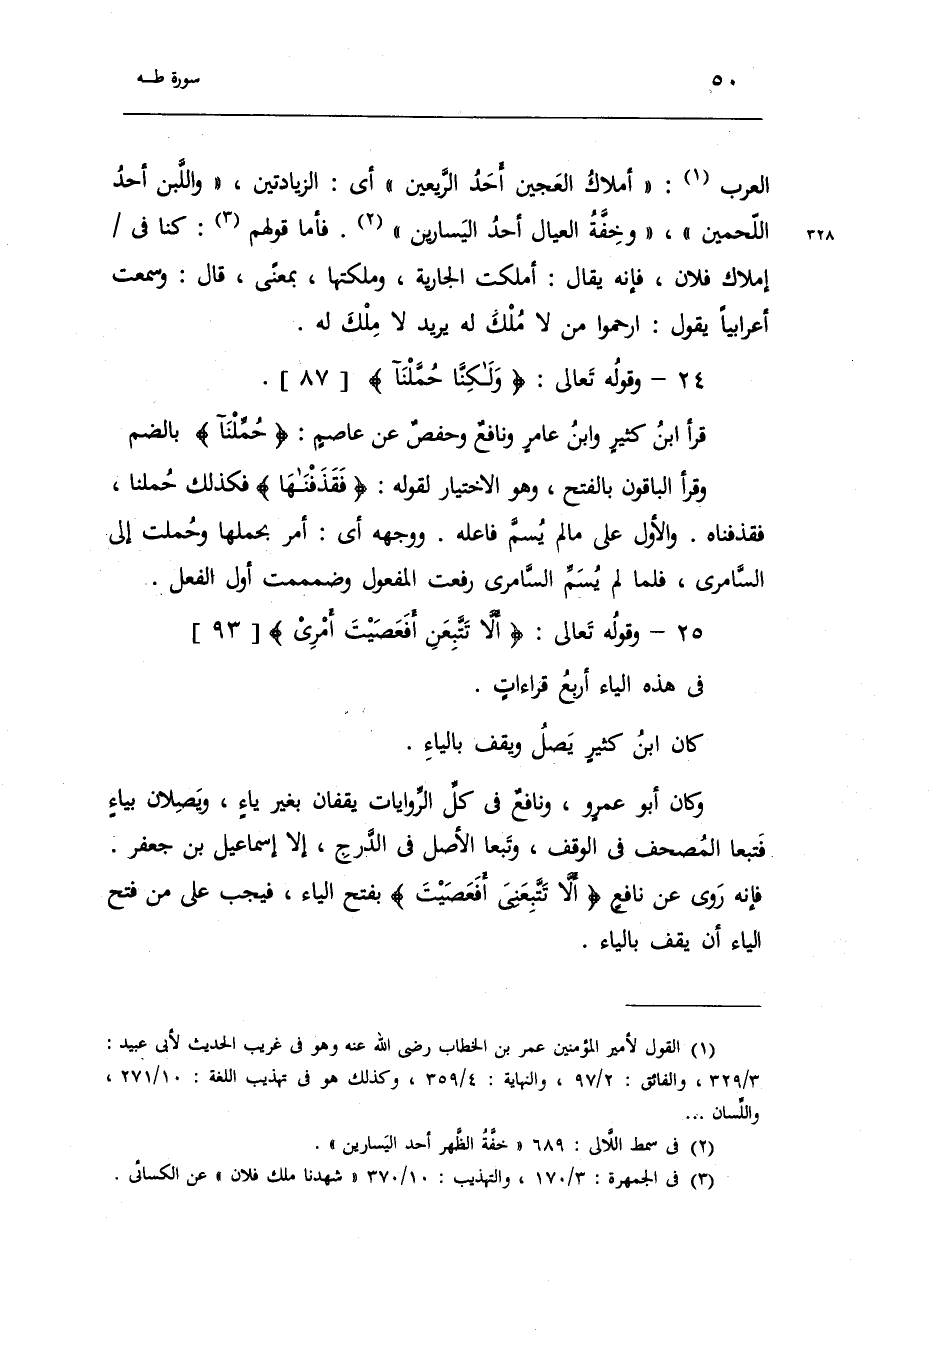 ٥٠ سورة طـه
العرب (١) : « أملاكُ العَجين أَحَدُ الرَّيعين » أى : الزيادتين ، « واللَّبن أحدُ
اللّحمين » ، « وخِفَّةُ العيال أحدُ اليَسارين » (٢) . فأما قولهم (٣) : كنا فى / ٣٢٨
إملاك فلان ، فإنه يقال : أملكت الجارية ، وملكتها ، بمعنًى ، قال : وسمعت
أعرابياً يقول : ارحموا من لا مُلْكَ له يريد لا مِلْكَ له .
٢٤ – وقولُه تَعالى : ﴿ وَلَـٰكِنَّا حُمَّلْنَآ ﴾ [ ٨٧ ] .
قرأ ابنُ كثيرٍ وابنُ عامرٍ ونافعٌ وحفصٌ عن عاصمٍ : ﴿ حُمِّلْنَآ ﴾ بالضم
وقرأ الباقون بالفتح ، وهو الاختيار لقوله : ﴿ فَقَذَفْنَـٰهَا ﴾ فكذلك حُملنا ،
فقذفناه . والأول على مالم يُسمَّ فاعله . ووجهه أى : أمر بحملها وحُملت إلى
السَّامرى ، فلما لم يُسَمِّ السَّامرى رفعت المفعول وضمممت أول الفعل .
٢٥ – وقولُه تَعالى : ﴿ أَلَّا تَتَّبِعَنِ أَفَعَصَيْتَ أَمْرِىْ ﴾ [ ٩٣ ]
فى هذه الياء أربعُ قراءاتٍ .
كان ابنُ كثيرٍ يَصلُ ويقف بالياءِ .
وكان أبو عمرٍو ، ونافعٌ فى كلِّ الرِّوايات يقفان بغير ياءٍ ، ويَصِلان بياءٍ
فَتبعا المُصحف فى الوقف ، وتَبعا الأصل فى الدَّرجِ ، إلا إسماعيل بن جعفر .
فإنه رَوى عن نافعٍ ﴿ أَلَّا تَتَّبِعَنِىَ أَفَعَصَيْتَ ﴾ بفتح الياء ، فيجب على من فتح
الياء أن يقف بالياء .
(١) القول لأمير المؤمنين عمر بن الخطاب رضى الله عنه وهو فى غريب الحديث لأبى عبيد :
٣٢٩/٣ ، والفائق : ٩٧/٢ ، والنهاية : ٣٥٩/٤ ، وكذلك هو فى تهذيب اللغة : ٢٧١/١٠ ،
واللِّسان ...
(٢) فى سمط اللَّالى : ٦٨٩ « خفَّةُ الظَّهر أحد اليَسارين » .
(٣) فى الجمهرة : ١٧٠/٣ ، والتهذيب : ٣٧٠/١٠ « شهدنا ملك فلان » عن الكسائى .